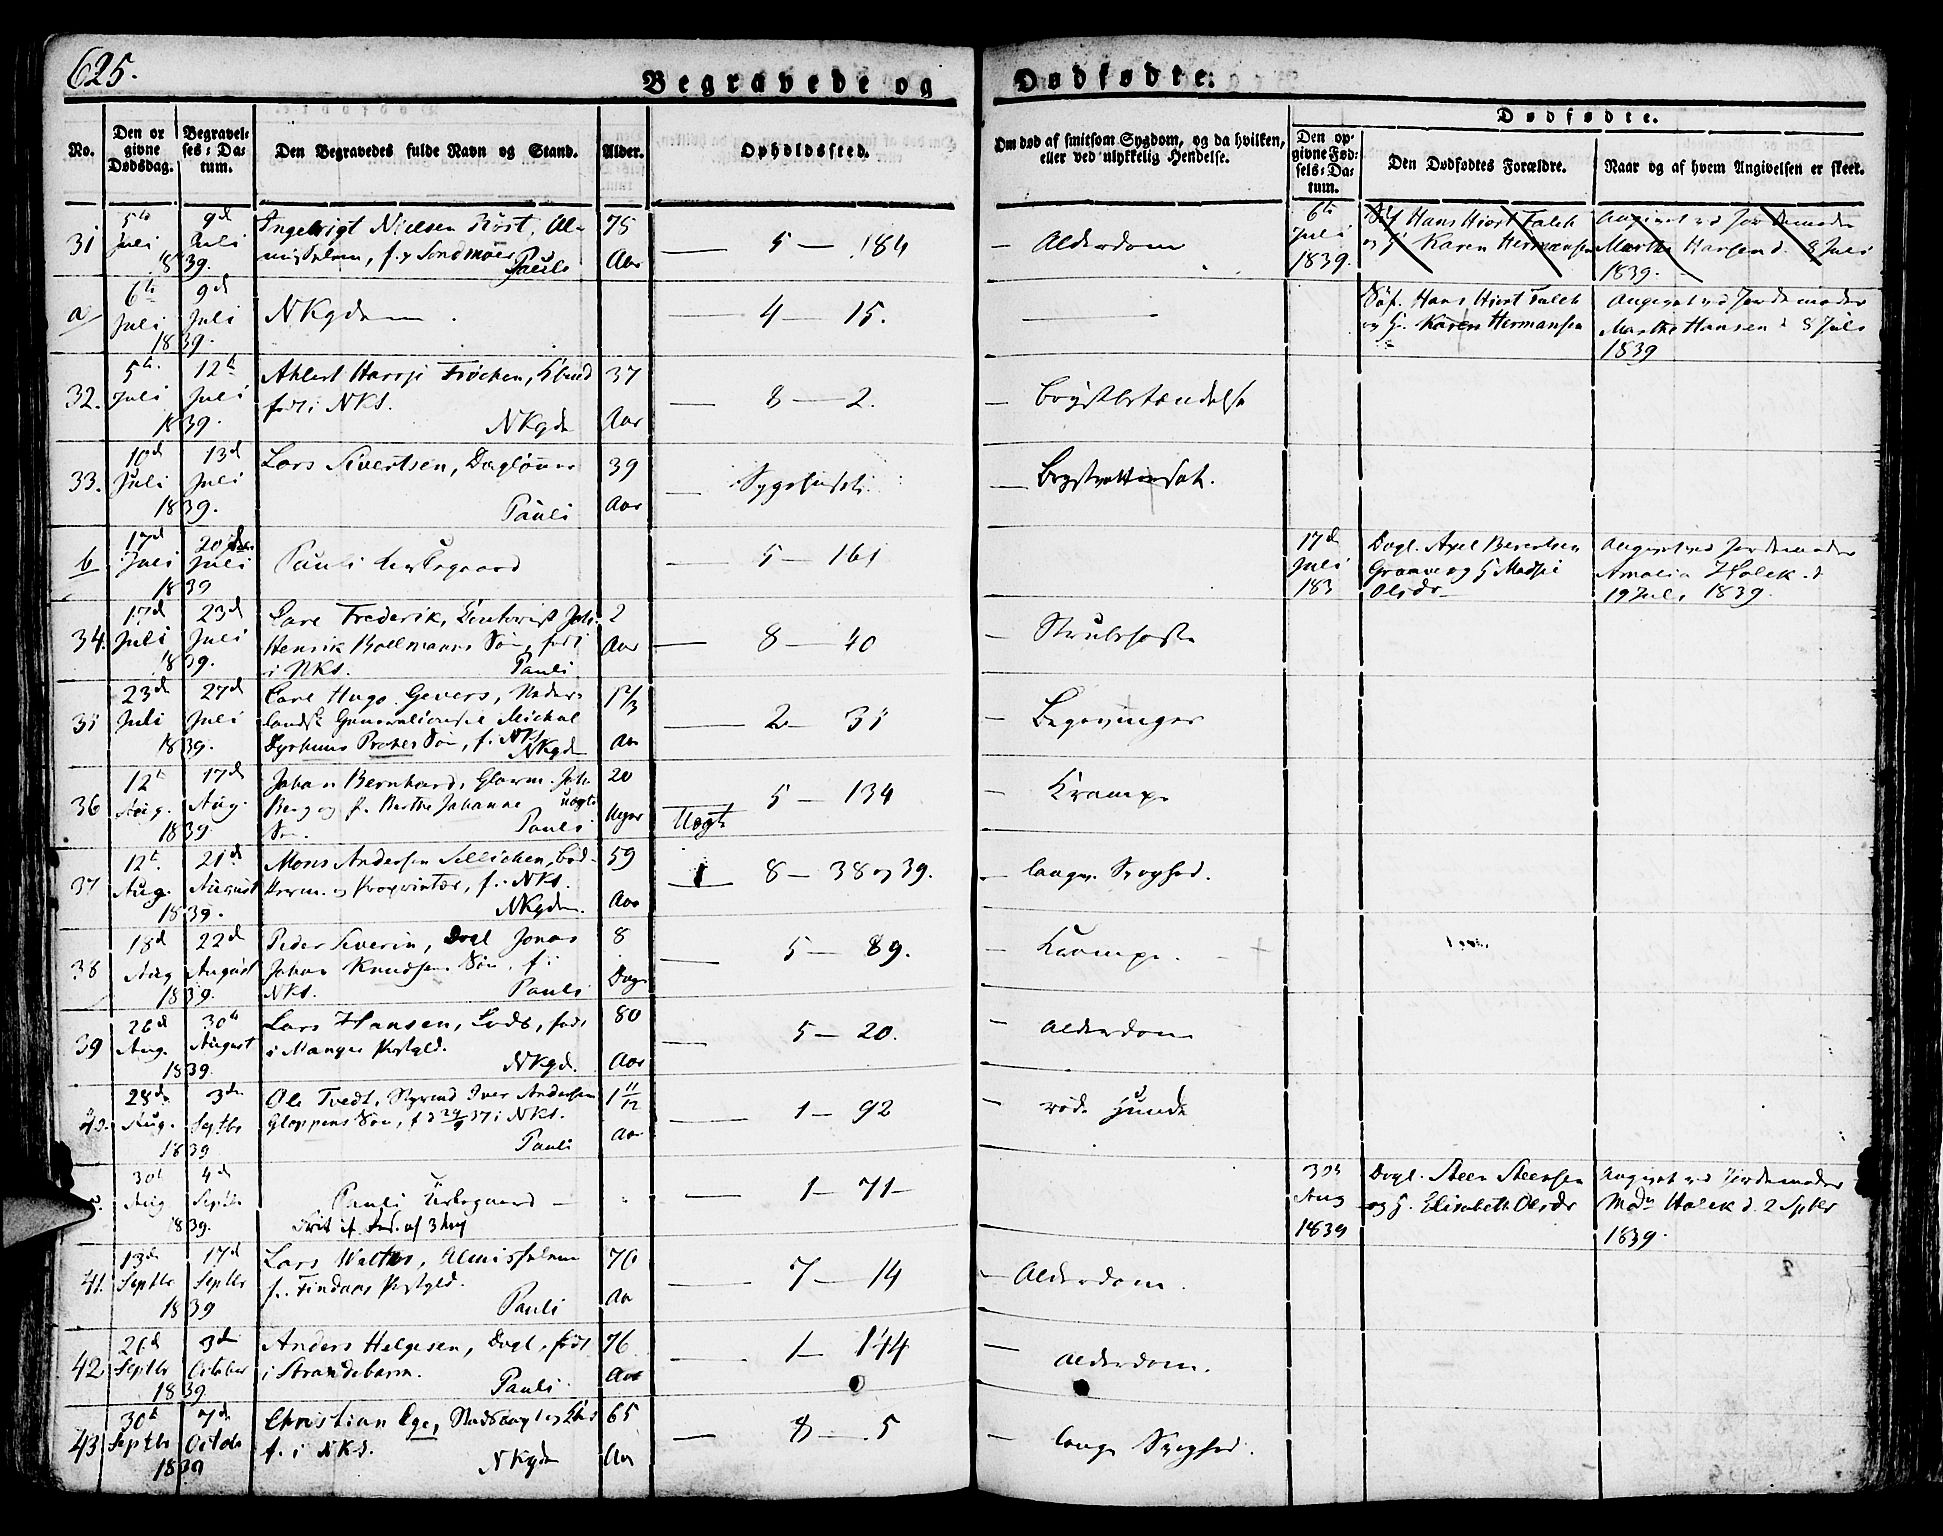 625.
Begravede og Dødfødte.
No.
Den opgivne Dødsdag.
Begravelses-Datum.
Den Begravedes fulde Navn og Stand.
Alder.
Opholdssted.
Om død af smitsom Sygdom, og da hvilken, eller ved ulykkelig Hendelse.
Dødfødte.
Den opgivne Fødsels-Datum.
Den Dødfødtes Forældre.
Naar og af hvem Angivelsen er skeet.
31 5te Juli 9de Juli 1839. Ingebrigt Nielsen Røst, Al-
misselem, f. p Søndmøer Pauli
75 Aar
5 — 184
Alderdom
6te Juli 1839.
Hans Hiort Falch
og H. Karen Hermansen
Angivet ved Jordemoder
Marthe Hansen d. 8 Juli
1839.
a 6te Juli 9de Juli 1839. NKgden
4 — 15.
Søf. Hans Hiort Falch
og H. Karen Hermansen
Angivet ved Jordemoder
Marthe Hansen d 8 Juli
1839
32. 5te Juli 12te Juli 1839.
fød i NKs.
NKgd
37 Aar
8 — 2.
Brystbetændelse
33. 10de Juli 13de Juli 1839. Lars Sivertsen, Daglønner
Pauli
39 Aar
Sygehuset
b 17de Juli 20de Juli 1839 Pauli Kirkegaard
5 — 161
17de Juli 183
Dagl. Axel Berentsen
og H Madsi
Olsdr
Angivet ved Jordemoder
Amalia Holck d
19 Juli 1839.
34. 17de Juli 23de Juli 1839. Carl Frederik,
Henrik Bollmanns Søn, fød
i NKs. Pauli
2 Aar
8 — 40
Strubehoste
35 23de Juli 27de Juli 1839. Carl Hugo Gevers, Neder-
landsk Generalconsul Michal
Prahls Søn, f. i NKs
NKgd
1 2/3 Aar
2 — 35
36 12te Aug. 17de Aug. 1839 Johan Bernhard, Joh.
Berg og p. Berthe Johanne uægte
Søn. Pauli
20 Uger
Uægte
5 — 134
Krampe
37 12te Aug. 21de August 1839. Mons Andersen Sellichen, Bød-
kerm. og Proprietær, f. i NKs.
NKgden.
59 Aar
8 — 38 og 39.
langv. Syghed.
38 18de Aug 22de August 1839. Peder Severin, Dagl Jonas
Johan Knudsens Søn, f. i
NKs. Pauli
8 Dage
5 — 89.
Krampe.
39 26de Aug. 30te August 1839. Lars Hansen, Lods, fød
i Manger Prstgld.
NKgd.
80 Aar
5 — 20.
Alderdom
40. 28de Aug. 3de Septbr 1839 Ole Tvedt, Styrmd Iver Andersen
Gloppens Søn, i NKs.
Pauli
1 11/12 Aar
1 — 92
røde Hunde
30te Aug 4de Septbr 1839. Pauli Kirkegaard —
1 — 71 —
30te Aug 1839
Dagl. Steen Steensen
og H. Elisabeth Olsdr
Angivet ved Jordemoder
Mdm Holck d. 2 Sptbr
1839.
41. 13de Septbr 17de Septbr 1839 Lars Walthr, Almisselem
f. i Findaas Prstgld.
Pauli
70 Aar
7 — 14
Alderdom.
42 26de Septbr 3de October 1839 Anders Helgesen, Dagl, født
i Strandebarm.
Pauli.
76 Aar
1 — 144
Alderdom.
43 30te Septbr 7de Octobr 1839 Christian Ege,
f. i NKs.
NKgden
65 Aar
8 — 5
langv Sygehed.